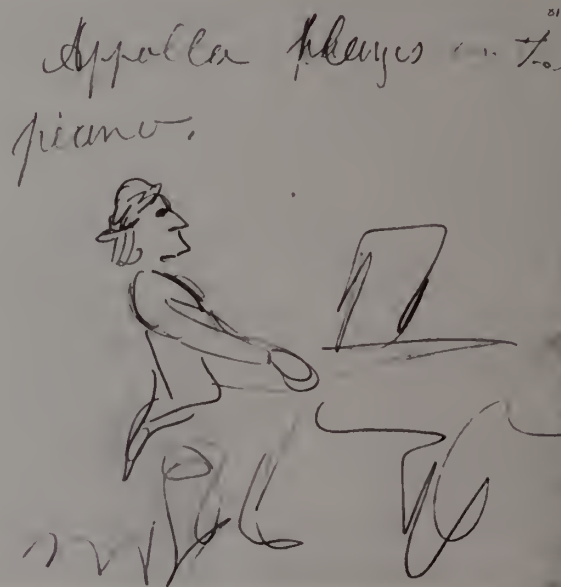 81
Appolla plays on the
piano.